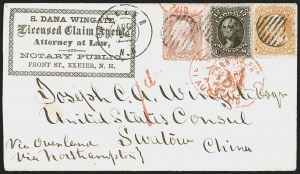 S. DANA WINGATE,
Licensed Claim Agent,
Attorney at Law,
AND
NOTARY PUBLIC,
FRONT ST., EXETER, N. H.
Joseph C. A. Wingate Esqr
United States Consul
Swatow
China
Via Overland
(via Northampton)